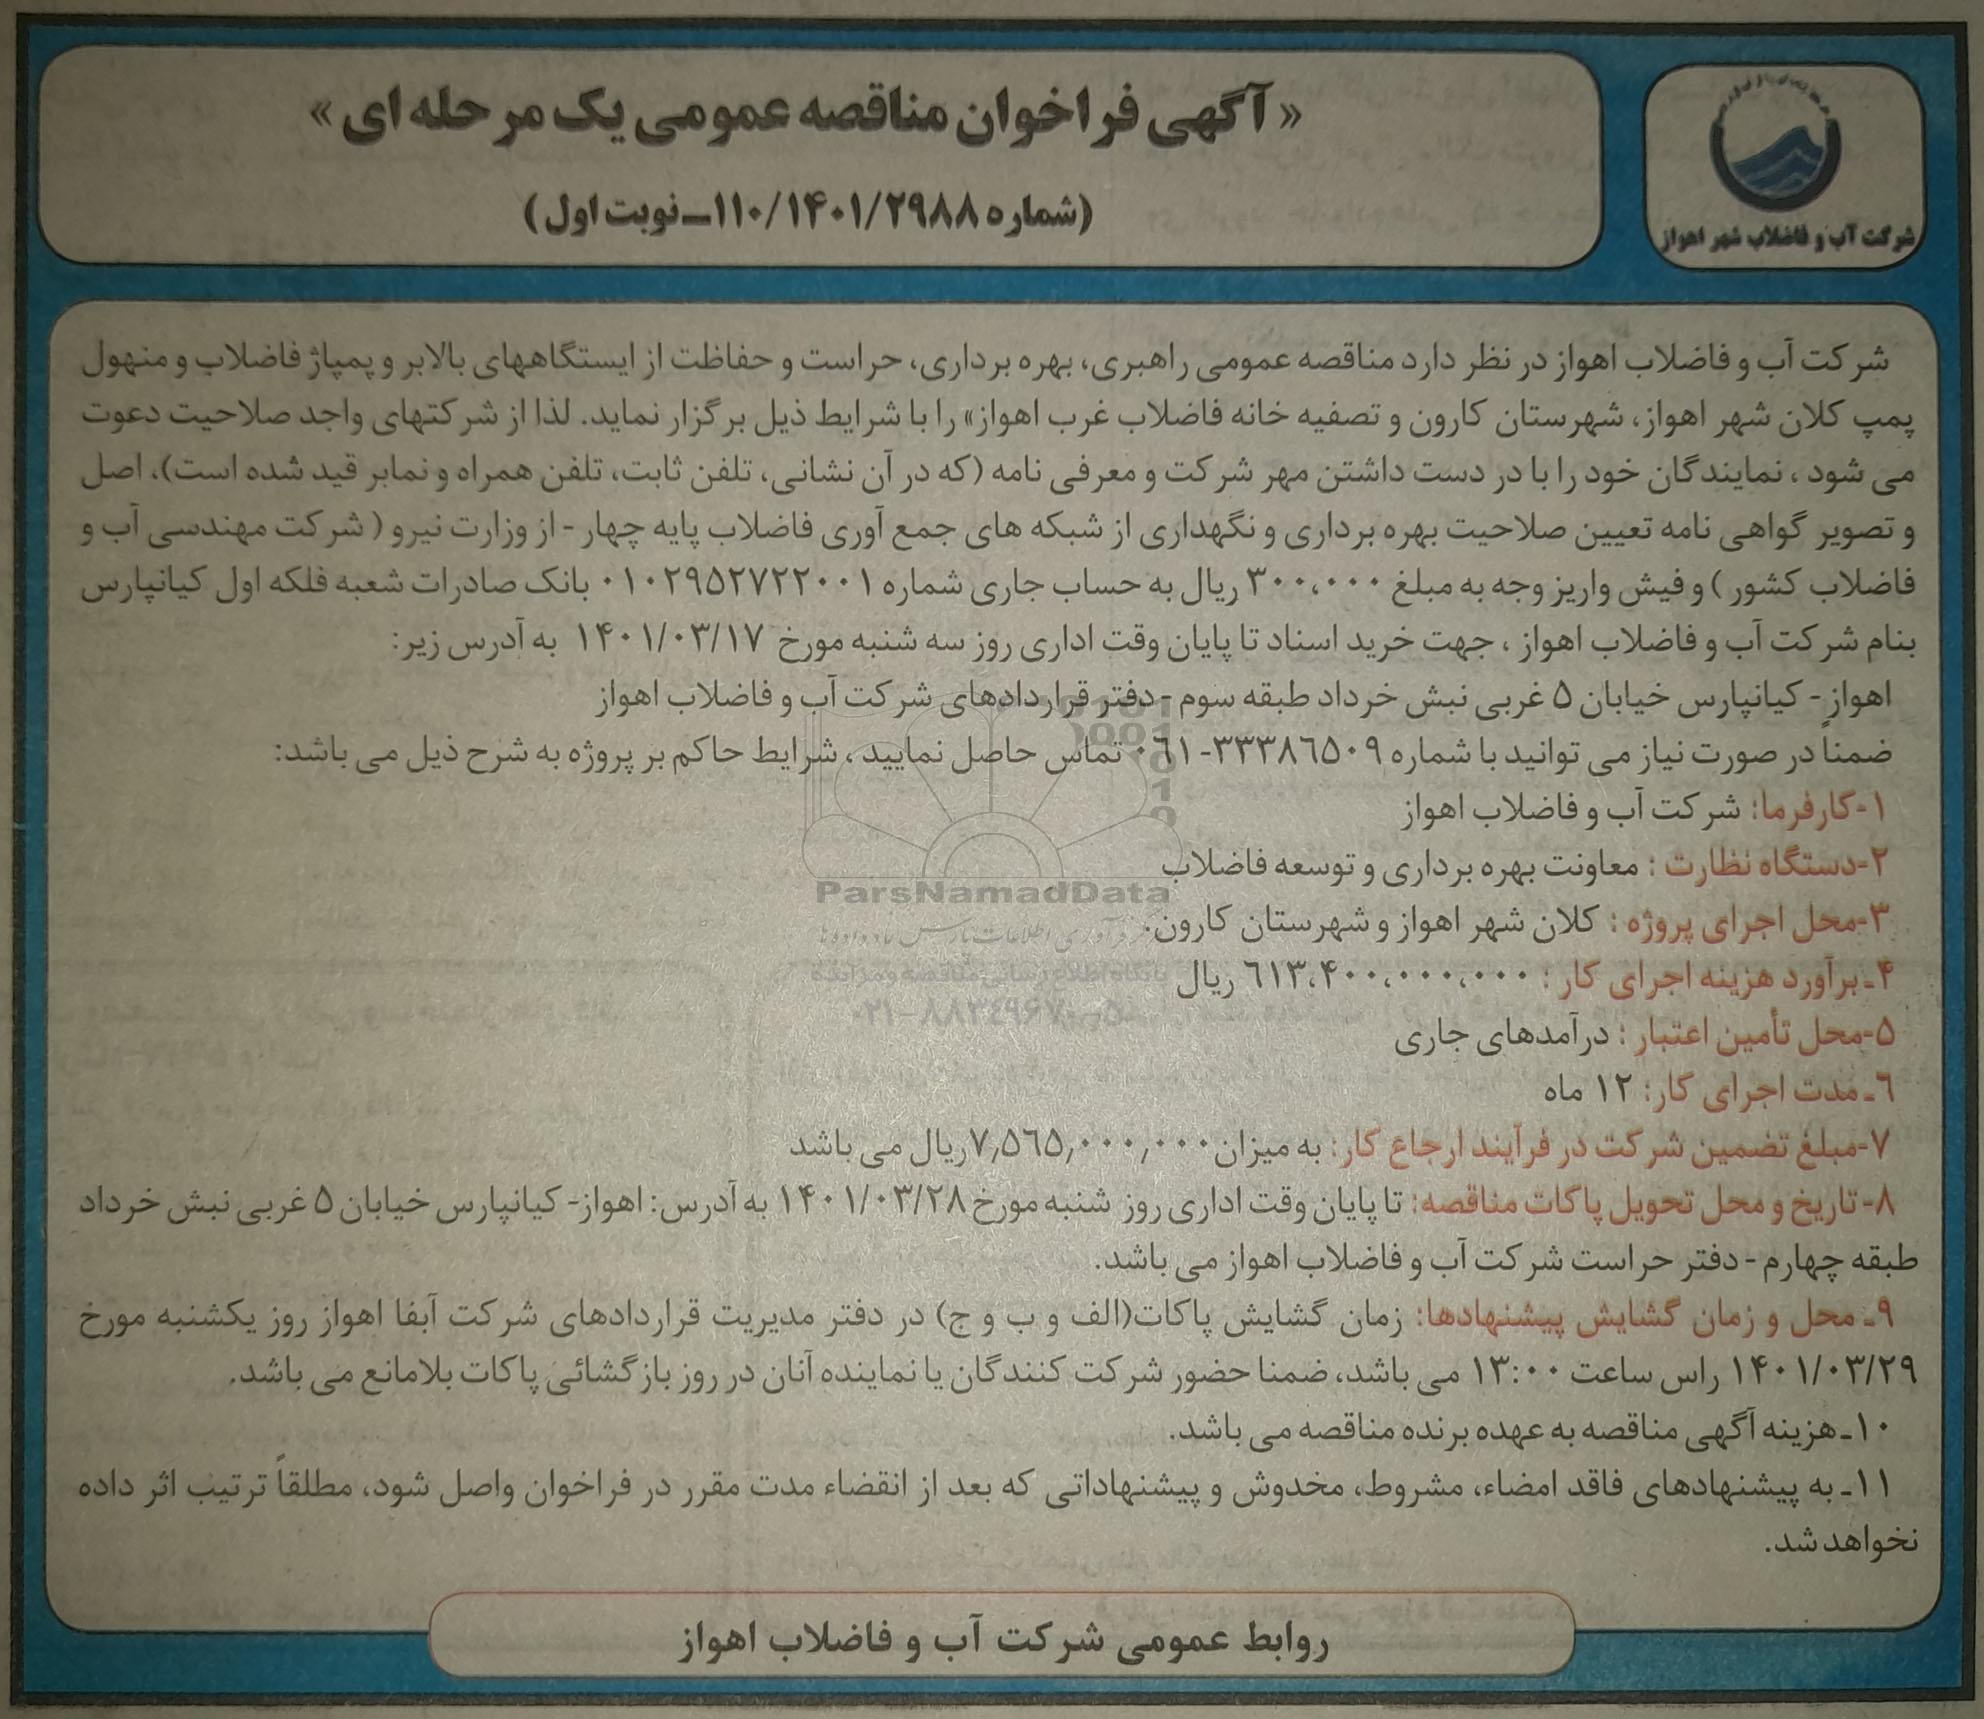 « آگهی فراخوان مناقصه عمومی یک مرحله ای »
(شماره ۱۱۰/۱۴۰۱/۲۹۸۸ـ نوبت اول)
شرکت آب و فاضلاب شهر اهواز
شرکت آب و فاضلاب اهواز در نظر دارد مناقصه عمومی راهبری، بهره برداری، حراست و حفاظت از ایستگاههای بالابر و پمپاژ فاضلاب و منهول
پمپ کلان شهر اهواز، شهرستان کارون و تصفیه خانه فاضلاب غرب اهواز» را با شرایط ذیل برگزار نماید. لذا از شرکتهای واجد صلاحیت دعوت
می شود ، نمایندگان خود را با در دست داشتن مهر شرکت و معرفی نامه (که در آن نشانی، تلفن ثابت، تلفن همراه و نمابر قید شده است)، اصل
و تصویر گواهی نامه تعیین صلاحیت بهره برداری و نگهداری از شبکه های جمع آوری فاضلاب پایه چهار - از وزارت نیرو ( شرکت مهندسی آب و
فاضلاب کشور ) و فیش واریز وجه به مبلغ ۳۰۰،۰۰۰ ریال به حساب جاری شماره ۰۱۰۲۹۵۲۷۲۲۰۰۱ بانک صادرات شعبه فلکه اول کیانپارس
بنام شرکت آب و فاضلاب اهواز ، جهت خرید اسناد تا پایان وقت اداری روز سه شنبه مورخ ۱۴۰۱/۰۳/۱۷ به آدرس زیر:
اهواز - کیانپارس خیابان ۵ غربی نبش خرداد طبقه سوم - دفتر قراردادهای شرکت آب و فاضلاب اهواز
ضمناً در صورت نیاز می توانید با شماره ۳۳۳۸٦۵۰۹-۰٦۱ تماس حاصل نمایید ، شرایط حاکم بر پروژه به شرح ذیل می باشد:
۱-کارفرما: شرکت آب و فاضلاب اهواز
۲-دستگاه نظارت : معاونت بهره برداری و توسعه فاضلاب
ParsNamadData
۳-محل اجرای پروژه : کلان شهر اهواز و شهرستان کارون.
پایگاه اطلاع رسانی مناقصه و مزایده
۴ـ برآورد هزینه اجرای کار : ٦۱۳،۴۰۰،۰۰۰،۰۰۰ ریال
۰۲۱-۸۸۳٤۹۶۷۰-۵
۵-محل تأمین اعتبار : درآمدهای جاری
٦ـ مدت اجرای کار: ۱۲ ماه
۷-مبلغ تضمین شرکت در فرآیند ارجاع کار: به میزان ۷٫۵٦۵٫۰۰۰٫۰۰۰ریال می باشد
۸- تاریخ و محل تحویل پاکات مناقصه: تا پایان وقت اداری روز شنبه مورخ ۱۴۰۱/۰۳/۲۸ به آدرس: اهواز- کیانپارس خیابان ۵ غربی نبش خرداد
طبقه چهارم - دفتر حراست شرکت آب و فاضلاب اهواز می باشد.
۹ـ محل و زمان گشایش پیشنهادها: زمان گشایش پاکات(الف و ب و ج) در دفتر مدیریت قراردادهای شرکت آبفا اهواز روز یکشنبه مورخ
۱۴۰۱/۰۳/۲۹ راس ساعت ۱۳:۰۰ می باشد، ضمنا حضور شرکت کنندگان یا نماینده آنان در روز بازگشائی پاکات بلامانع می باشد.
۱۰ـ هزینه آگهی مناقصه به عهده برنده مناقصه می باشد.
۱۱ـ به پیشنهادهای فاقد امضاء، مشروط، مخدوش و پیشنهاداتی که بعد از انقضاء مدت مقرر در فراخوان واصل شود، مطلقاً ترتیب اثر داده
نخواهد شد.
روابط عمومی شرکت آب و فاضلاب اهواز